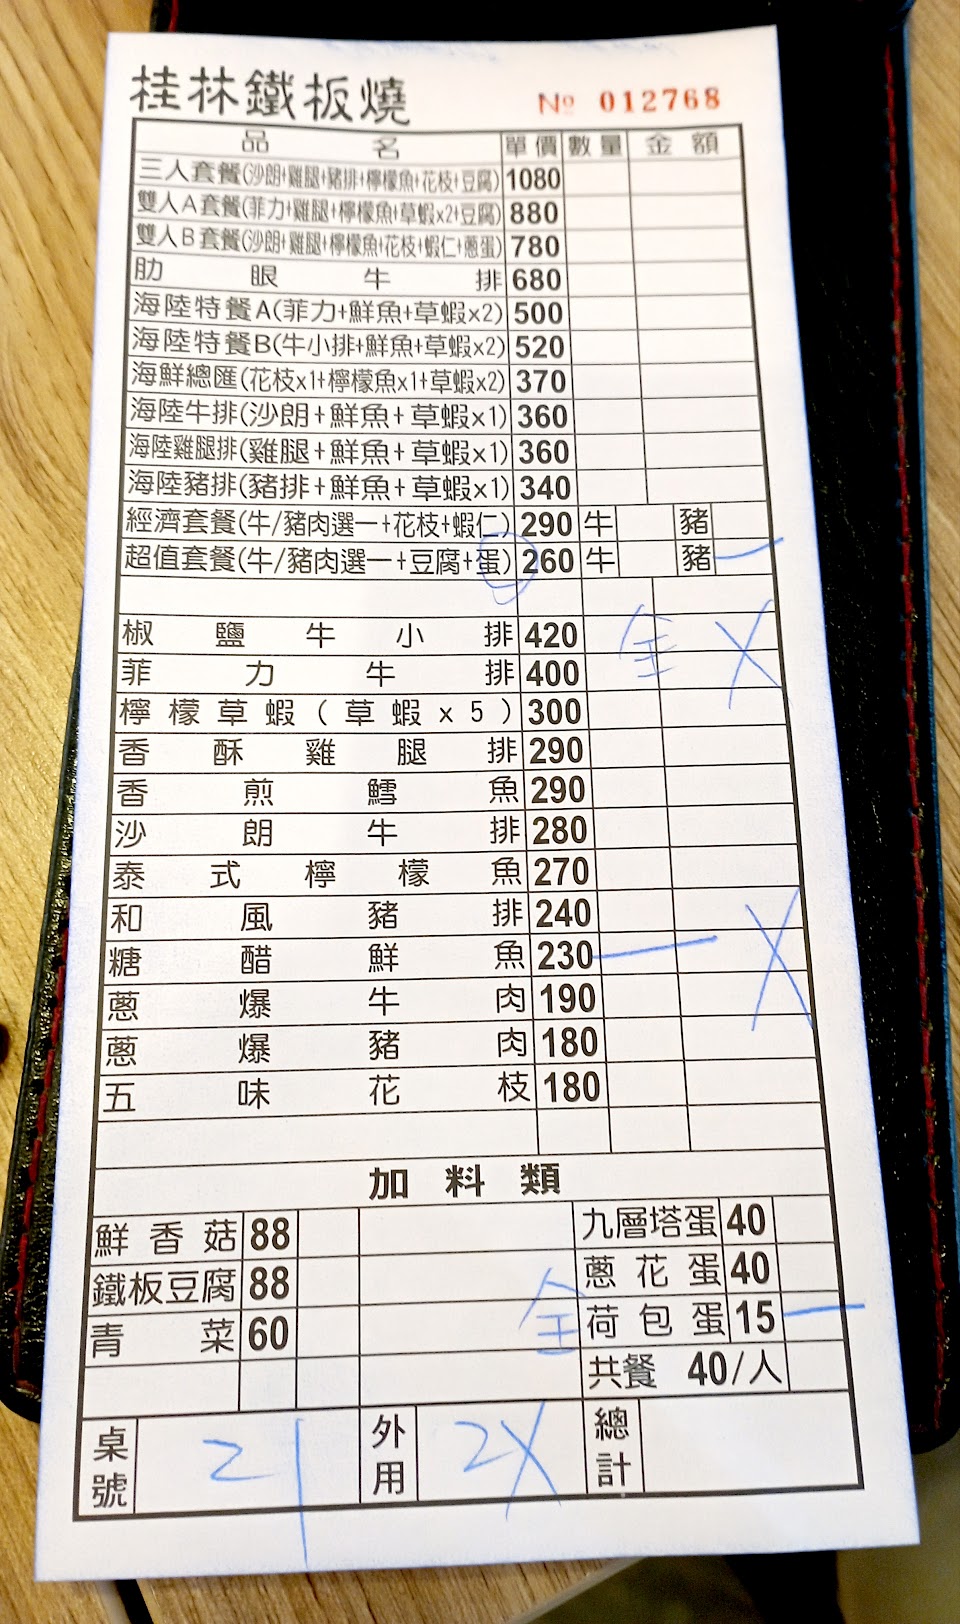 桂林鐵板燒
№ 012768
品名 單價 數量 金額
三人套餐(沙朗+雞腿+豬排+檸檬魚+花枝+豆腐) 1080
雙人A套餐(菲力+雞腿+檸檬魚+草蝦x2+豆腐) 880
雙人B套餐(沙朗+雞腿+檸檬魚+花枝+蝦仁+蔥蛋) 780
肋眼牛排 680
海陸特餐A(菲力+鮮魚+草蝦x2) 500
海陸特餐B(牛小排+鮮魚+草蝦x2) 520
海鮮總匯(花枝x1+檸檬魚x1+草蝦x2) 370
海陸牛排(沙朗+鮮魚+草蝦x1) 360
海陸雞腿排(雞腿+鮮魚+草蝦x1) 360
海陸豬排(豬排+鮮魚+草蝦x1) 340
經濟套餐(牛/豬肉選一+花枝+蝦仁) 290 牛 豬
超值套餐(牛/豬肉選一+豆腐+蛋) 260 牛 豬 一
椒鹽牛小排 420
全 X
菲力牛排 400
檸檬草蝦(草蝦x5) 300
香酥雞腿排 290
香煎鱈魚 290
沙朗牛排 280
泰式檸檬魚 270
和風豬排 240
糖醋鮮魚 230 一 X
蔥爆牛肉 190
蔥爆豬肉 180
五味花枝 180
加料類
鮮香菇 88 九層塔蛋 40
鐵板豆腐 88 蔥花蛋 40
青菜 60 全 荷包蛋 15 一
共餐 40/人
桌號 21 外用 2X 總計